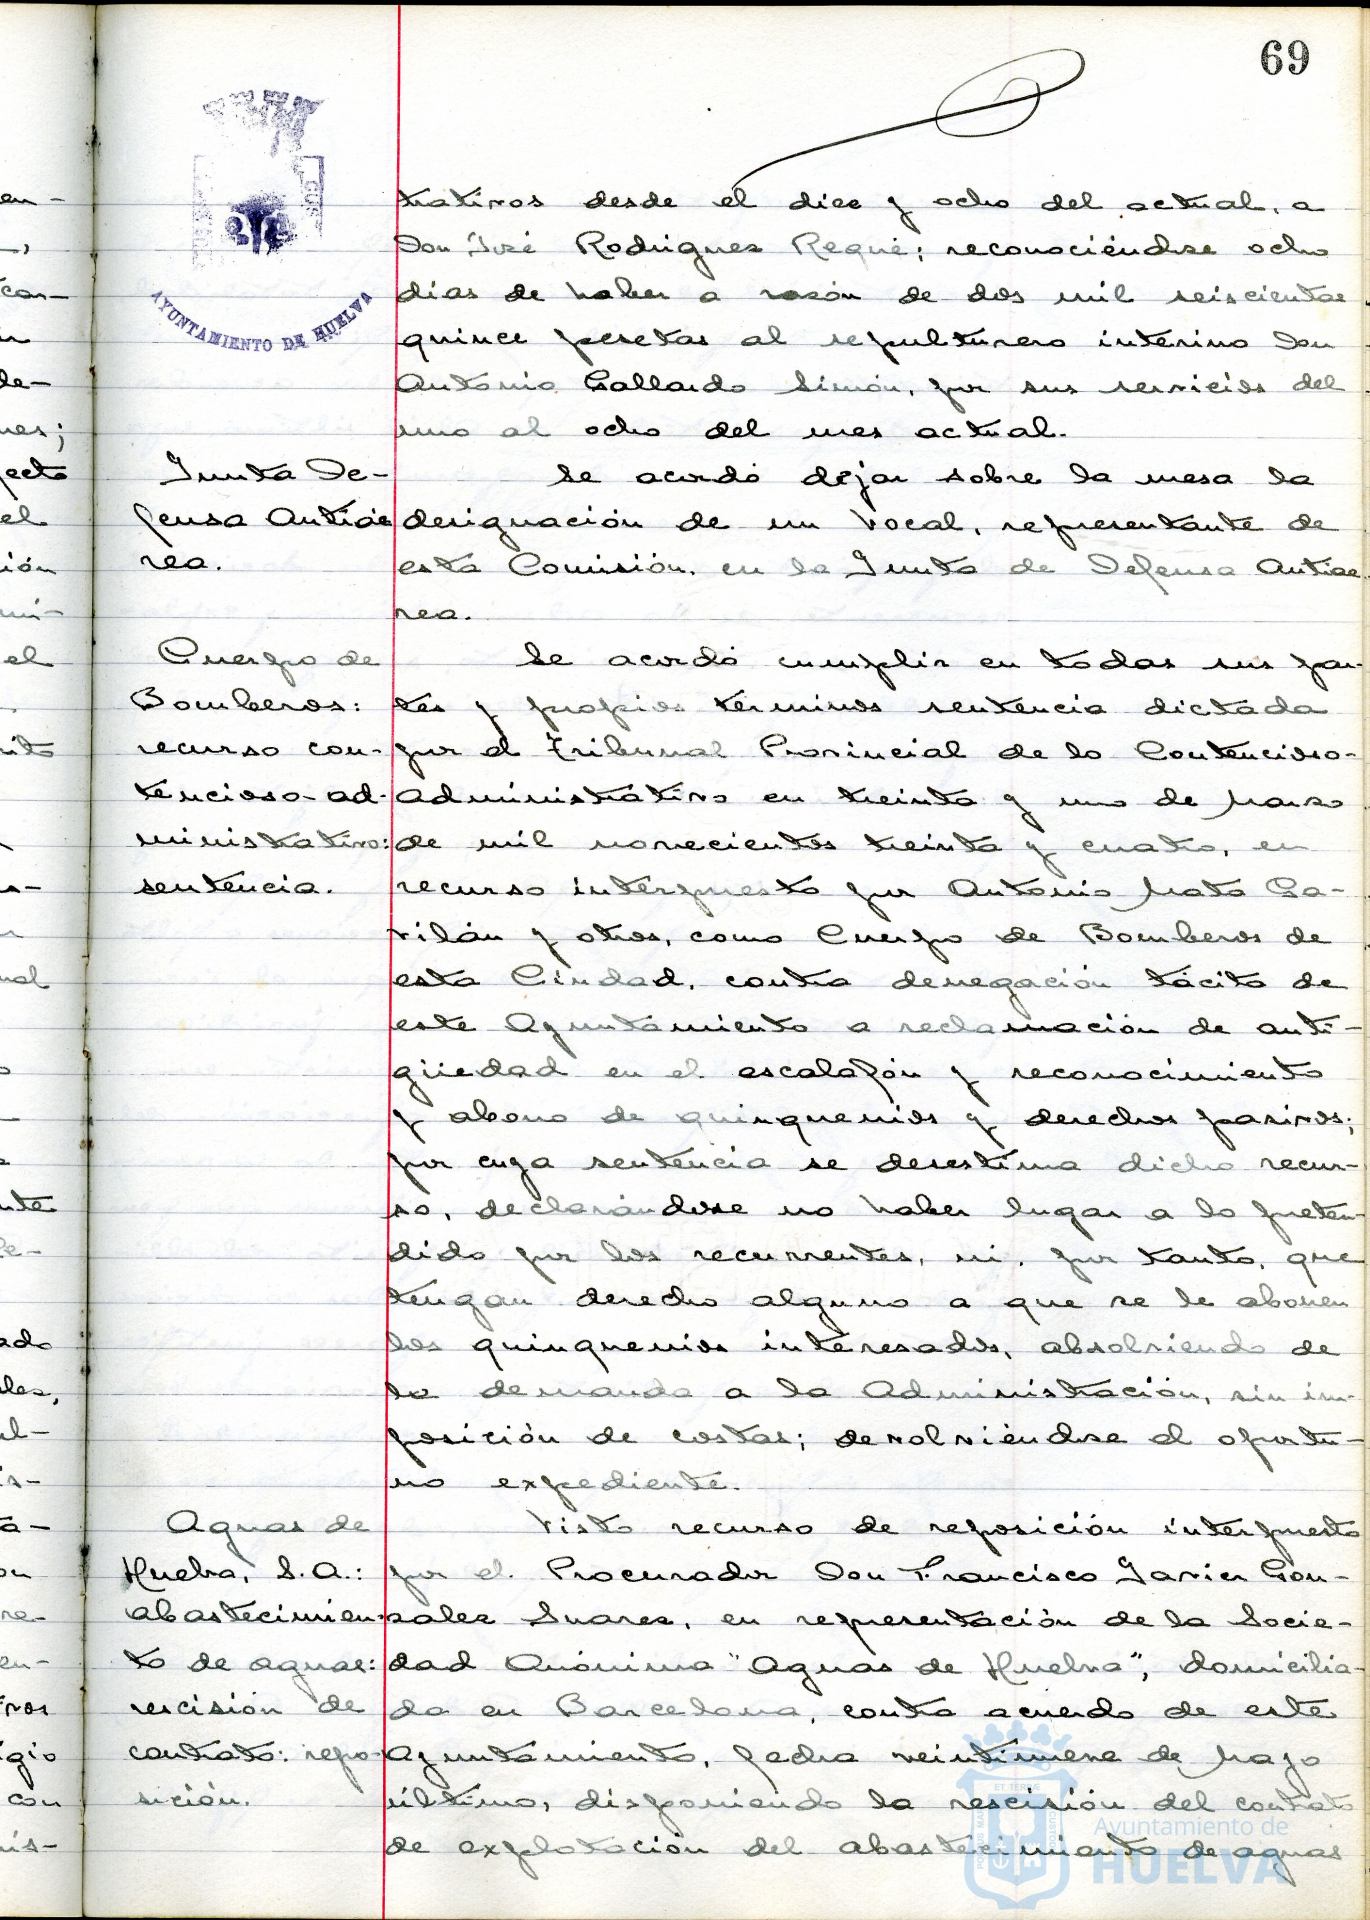 69
AYUNTAMIENTO DE HUELVA
trativos desde el diez y ocho del actual, a
Don José Rodrigues Requé; reconociéndose ocho
dias de haber a razón de dos mil seiscientas
quince pesetas al sepulturero interino Don
Antonio Gallardo Simón, por sus servicios del
uno al ocho del mes actual.
Junta De-
fensa Antiae
rea.
Se acordó dejar sobre la mesa la
designación de un vocal, representante de
esta Comisión, en la Junta de Defensa Antiae
rea.
Cuerpo de
Bomberos:
recurso con-
tencioso-ad-
ministrativo:
sentencia.
Se acordó cumplir en todas sus par-
tes y propios terminos sentencia dictada
por el Tribunal Provincial de lo Contencioso-
Administrativo en treinta y uno de Marzo
de mil novecientos treinta y cuatro, en
recurso interpuesto por Antonio Mato Ga-
vilán y otros, como Cuerpo de Bomberos de
esta Ciudad, contra denegación tácita de
este Ayuntamiento a reclamación de anti-
güedad en el escalafón y reconocimiento
y abono de quinquenios y derechos pasivos;
por cuya sentencia se desestima dicho recur-
so, declarándose no haber lugar a lo preten-
dido por los recurrentes, ni, por tanto, que
tengan derecho alguno a que se le abonen
los quinquenios interesados, absolviendo de
la demanda a la Administración, sin im-
posición de costas; devolviéndose el oportu-
no expediente.
Aguas de
Huelva, S.A.:
abastecimien-
to de aguas:
rescisión de
contrato: repo-
sición.
Visto recurso de reposición interpuesto
por el Procurador Don Francisco Javier Gon-
zales Suares, en representación de la Socie-
dad Anónima "Aguas de Huelva", domicilia-
da en Barcelona, contra acuerdo de este
Ayuntamiento, fecha veintinueve de Mayo
último, disponiendo la rescisión del contrato
de explotación del abastecimiento de aguas
Ayuntamiento de
HUELVA